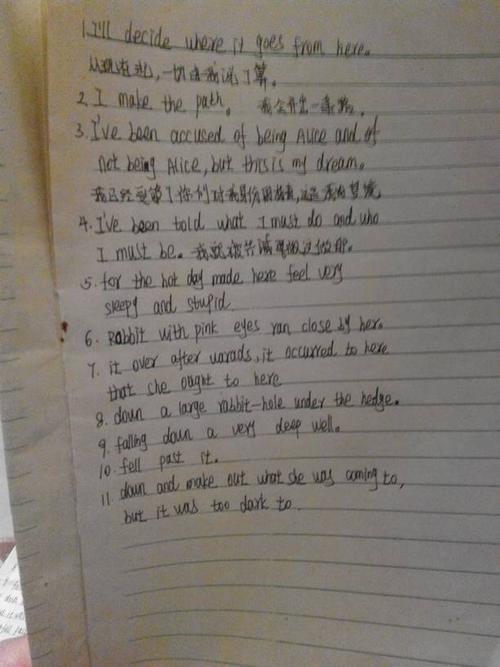 1. I'll decide where it goes from here.
从现在起,一切由我说了算。
2. I make the path. 我会开出一条路.
3. I've been accused of being Alice and of
not being Alice, but this is my dream.
我已经受够了你们对我身份的,这是我的梦境
4. I've been told what I must do and who
I must be. 我就被告诫要做这做那.
5. for the hot day made here feel very
sleepy and stupid
6. Rabbit with pink eyes ran close by her.
7. it over after warads, it occurred to here
that she ought to here
8. down a large rabbit-hole under the hedge.
9. falling down a very deep well.
10. fell past it.
11. down and make out what she was coming to,
but it was too dark to